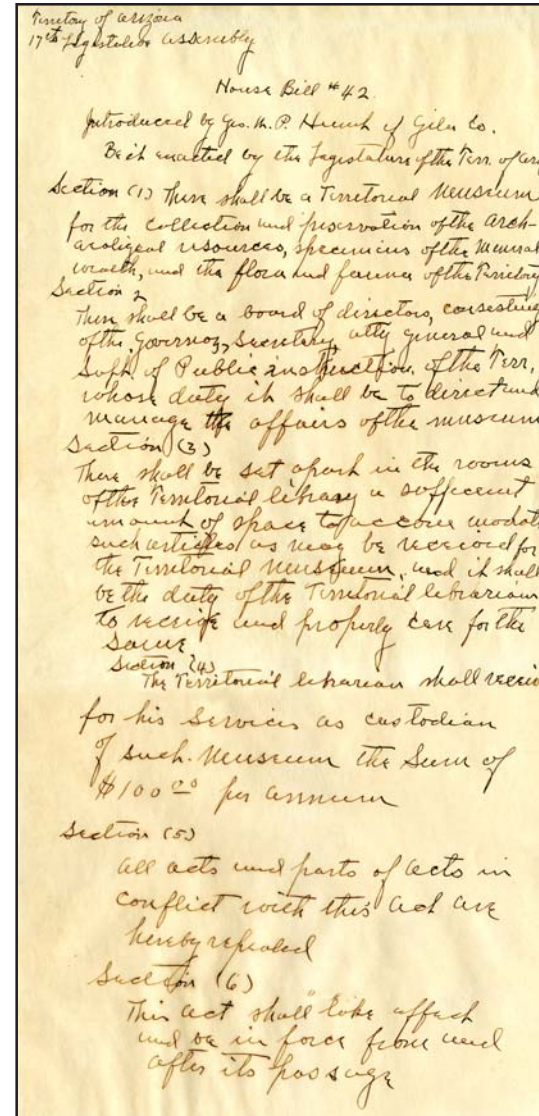 Territory of Arizona
17th Legistative Assembly
House Bill #42.
Introduced by Geo. W. P. Hunt of Gila Co.
Be it enacted by the Legistature of the Terr. of Ariz
Section (1) There shall be a Territorial Museum
for the collection and preservation of the arch-
aeoligical resources, specimins of the mineral
wealth, and the flora and fauna of the Territory
Section 2
There shall be a board of directors, consesting
of the Governor, Secretary, atty general and
Supt. of Public instruction, of the Terr,
whose duty it shall be to direct and
manage the affairs of the museum
Section (3)
There shall be set apart in the rooms
of the Territorial library a sufficent
amount of space to accom modate
such articles as may be received for
the Territorial Museum, and it shall
be the duty of the Territorial librarian
to receive and properly care for the
same
Section (4)
The Territorial librarian shall receive
for his services as custodian
of such Museum the Sum of
$100.00 per annum
Section (5)
all acts and parts of acts in
conflict with this act are
hereby repealed
Section (6)
This act shall take affect
and be in force from and
after its passage